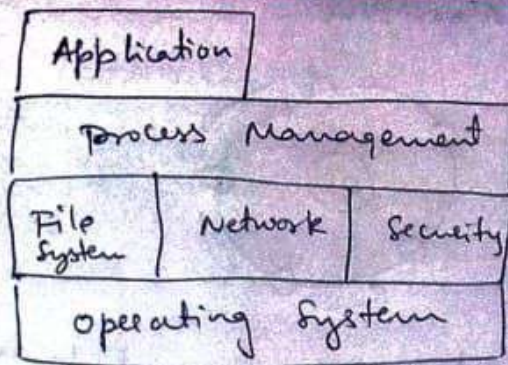 Application
Process Management
File System
Network
Security
Operating System